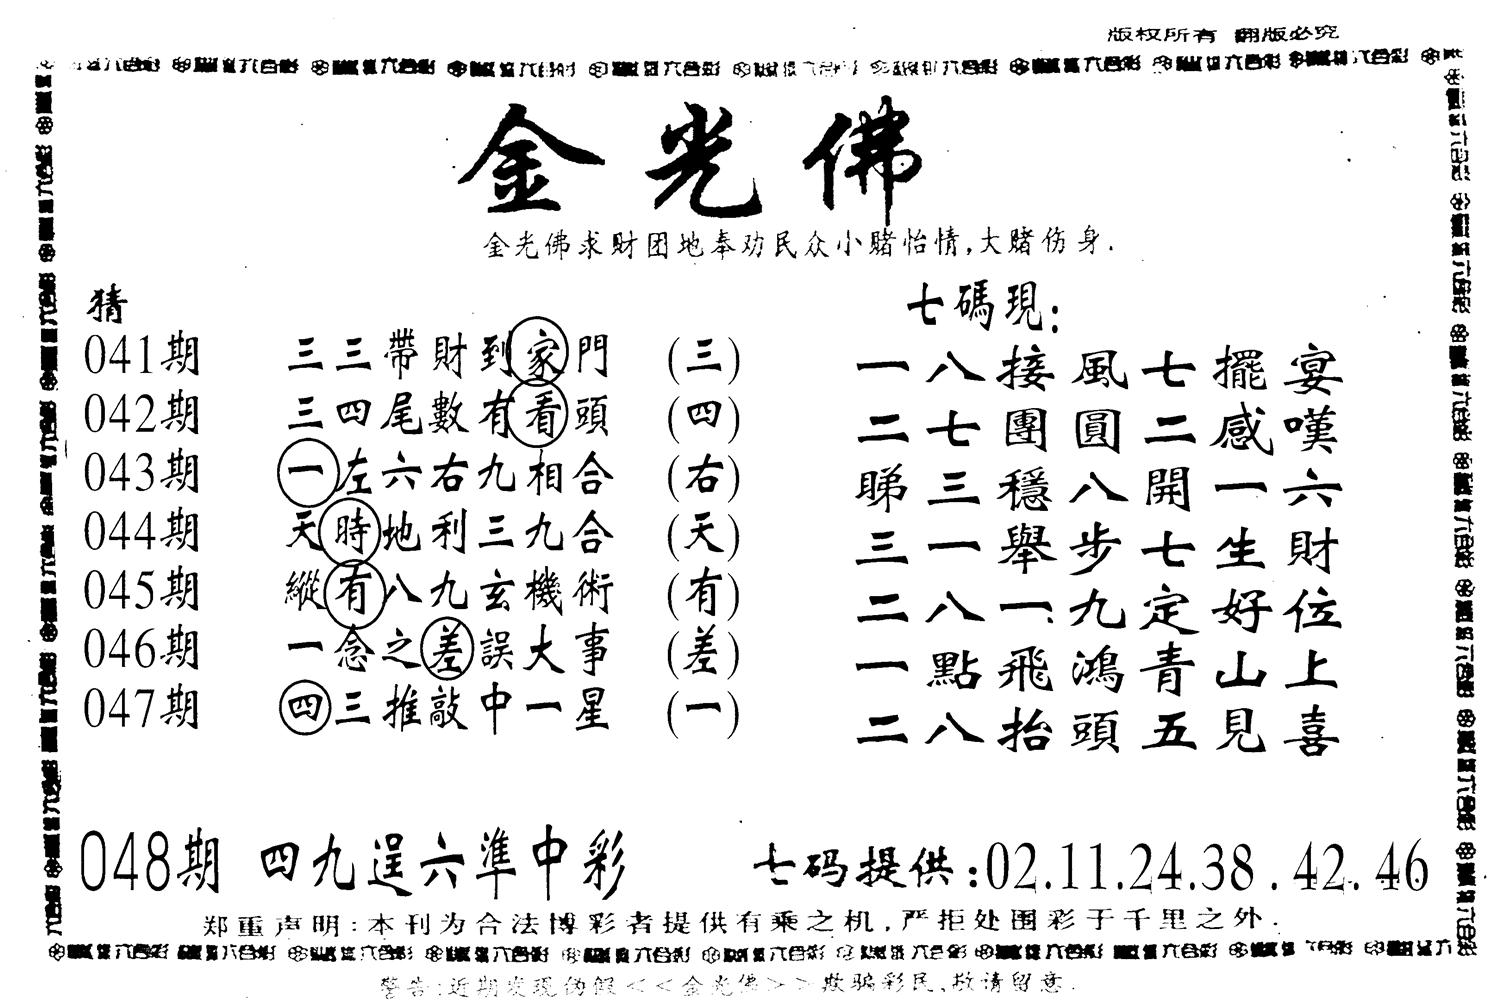 版权所有 翻版必究
金光佛
金光佛求财团地奉劝民众小赌怡情,大赌伤身.
猜
041期 三三帶財到家門 (三)
042期 三四尾數有看頭 (四)
043期 一左六右九相合 (右)
044期 天時地利三九合 (天)
045期 縱有八九玄機術 (有)
046期 一念之差誤大事 (差)
047期 四三推敲中一星 (一)
七碼現:
一八接風七擺宴
二七團圓二感嘆
睇三穩八開一六
三一舉步七生財
二八一九定好位
一點飛鴻青山上
二八抬頭五見喜
048期 四九逞六準中彩
七码提供:02.11.24.38.42.46
郑重声明:本刊为合法博彩者提供有乘之机,严拒处围彩于千里之外.
警告:近期发现伪假<<金光佛>>欺骗彩民,敬请留意.